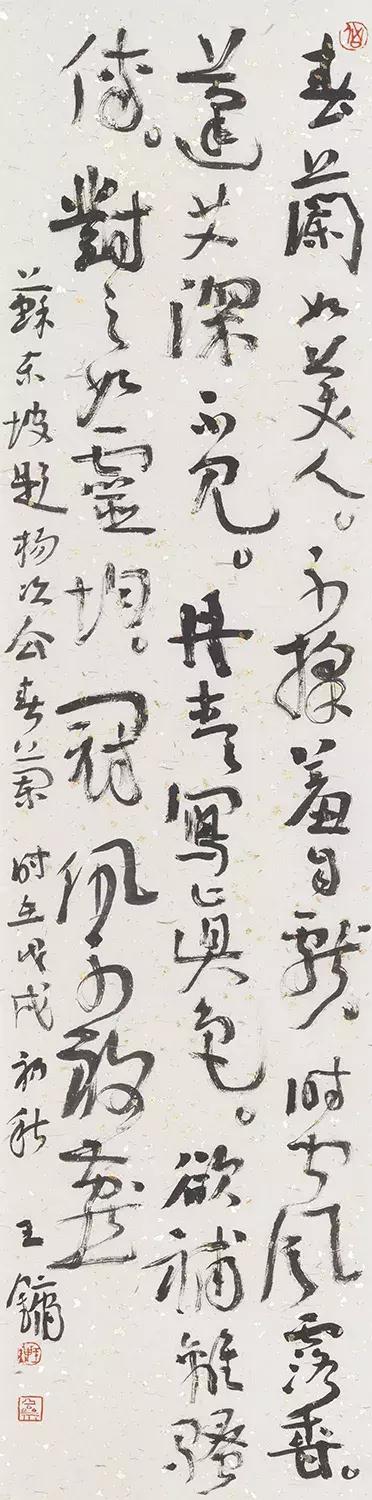 春蘭如美人。不採羞自獻。時聞風露香。
蓬艾深不見。丹青寫真色。欲補離騷
傳。對之如靈均。冠佩不敢燕
蘇東坡題楊次公春蘭 時在戊戌初秋 王鏞